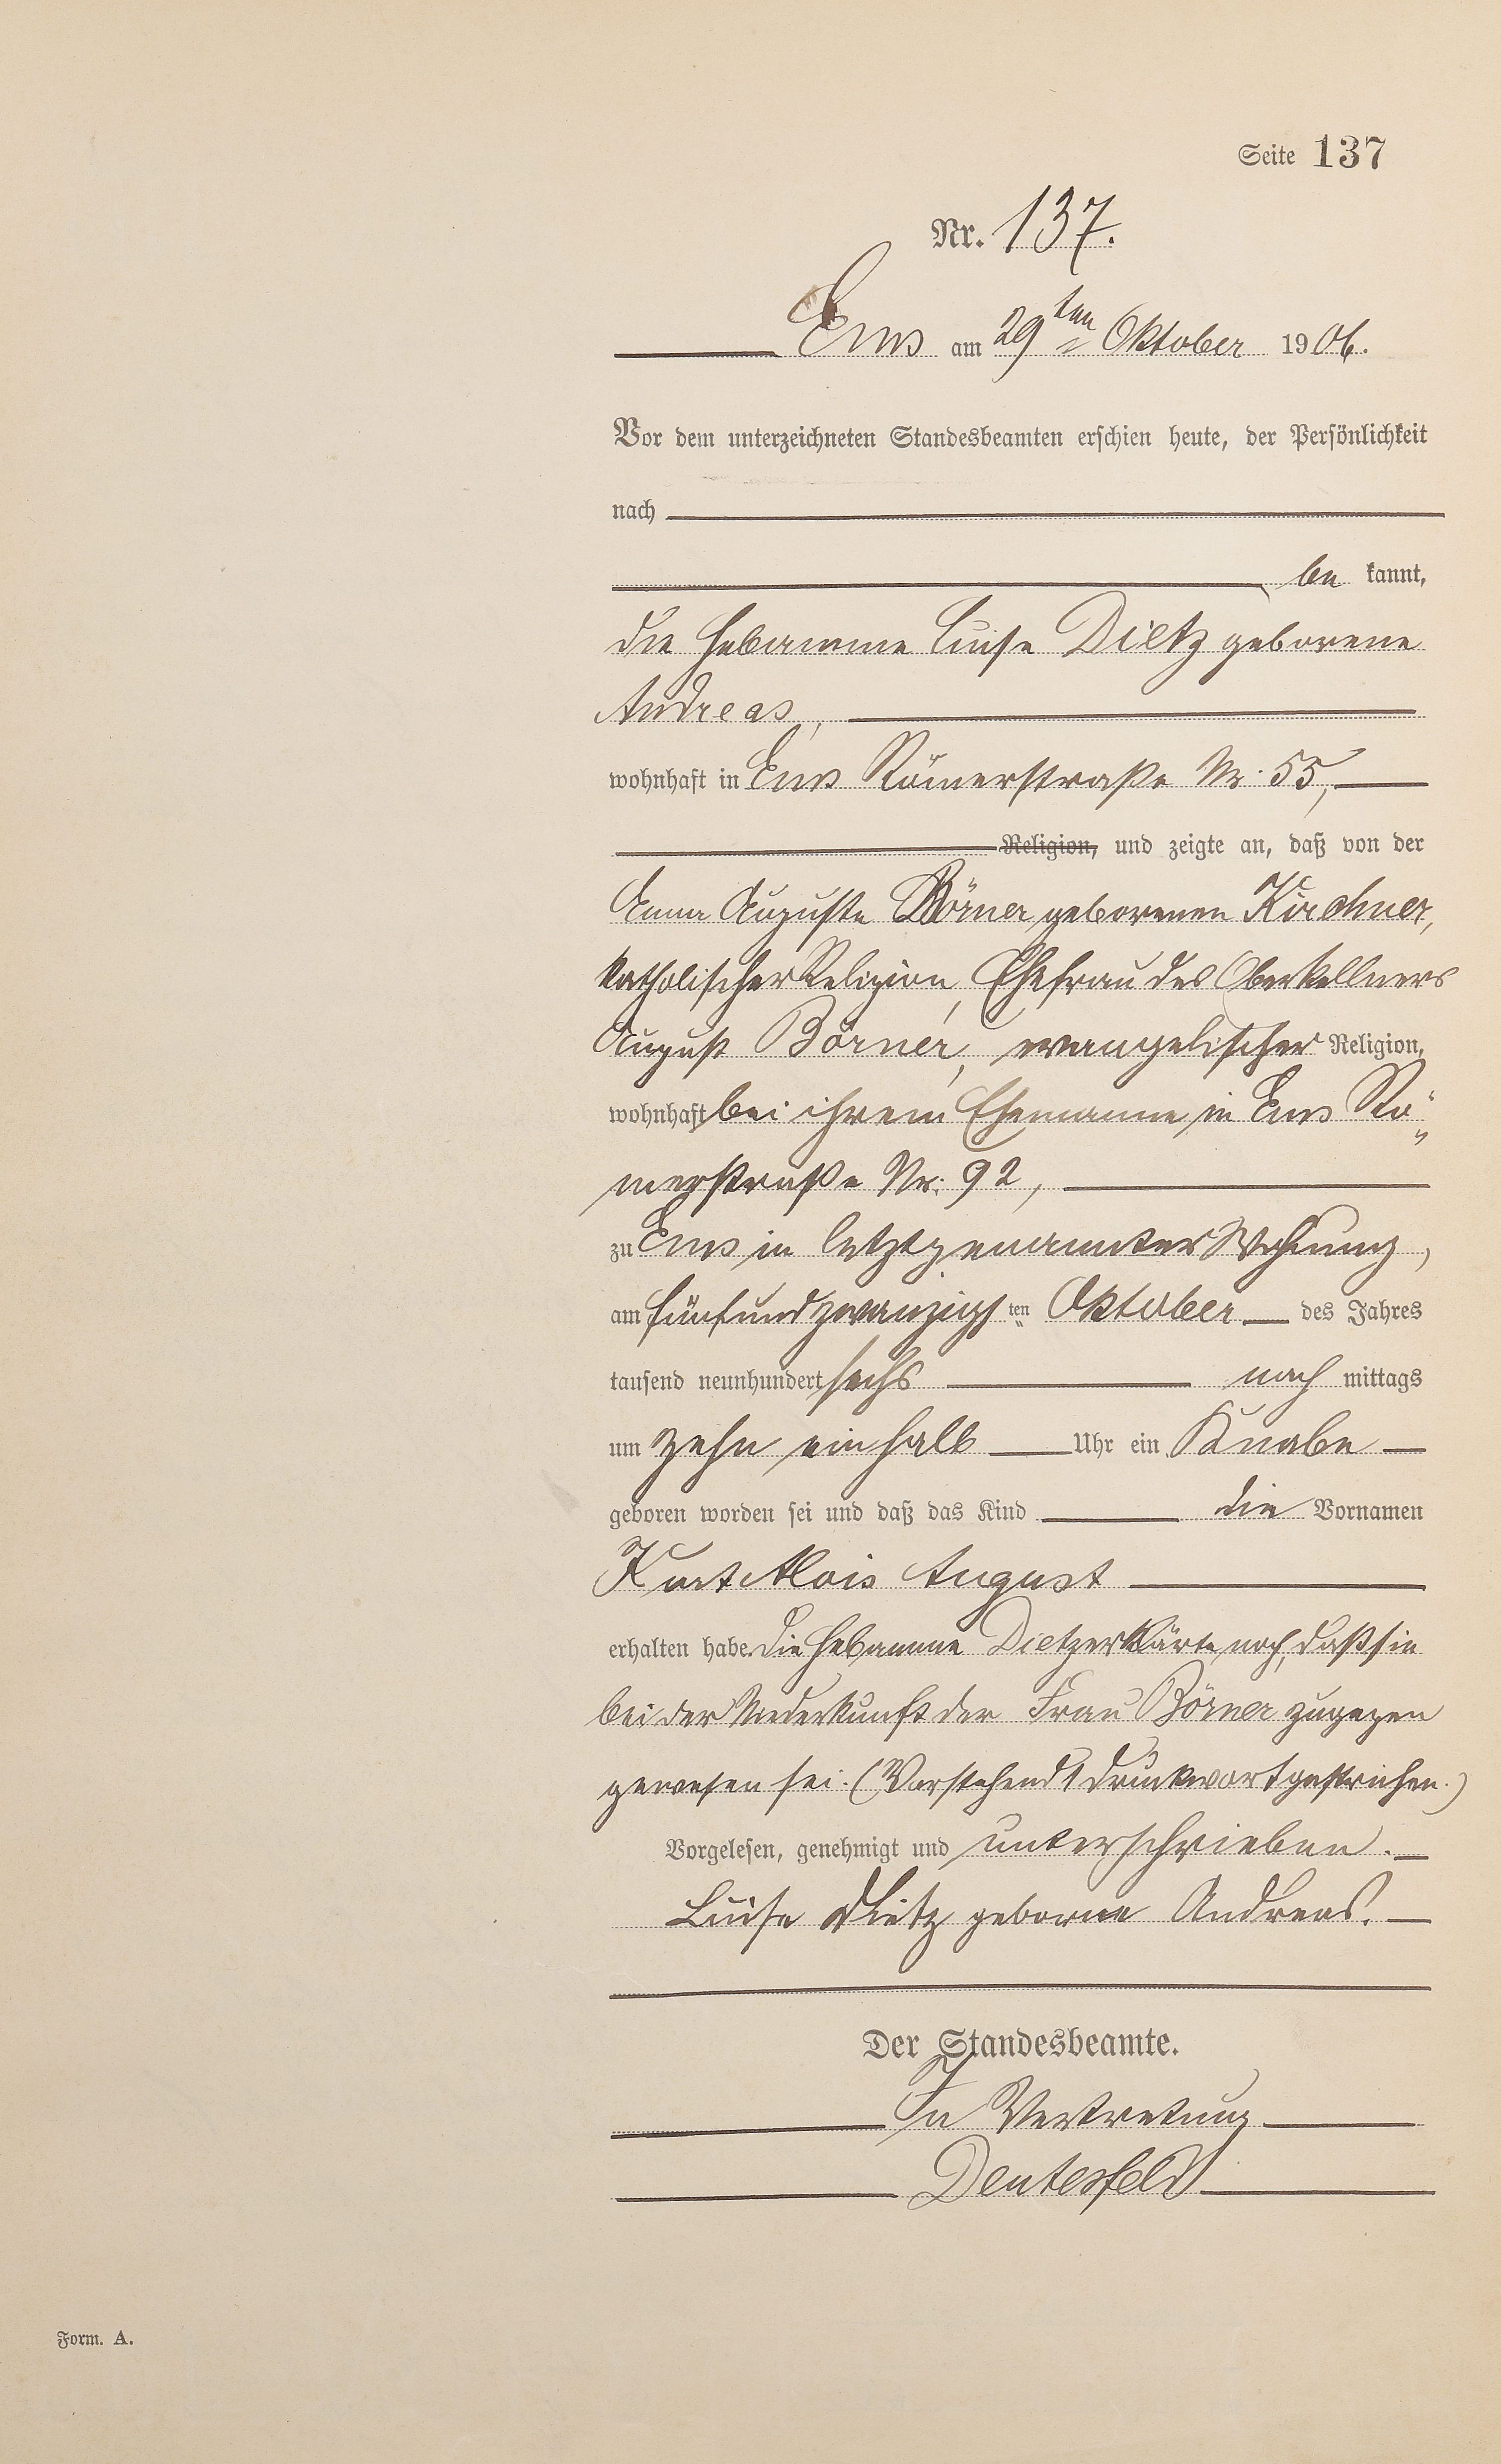 Seite 137
Nr. 137.
Ems am 29ten Oktober 1906.
Vor dem unterzeichneten Standesbeamten erschien heute, der Persönlichkeit
nach
be kannt,
die Hebamme Luise Dietz geborene
Andreas,
wohnhaft in Ems Römerstraße Nr. 55,
Religion, und zeigte an, daß von der
Anna Auguste Börner geborenen Kirchner,
katholischer Religion, Ehefrau des Oberkellners
August Börner, evangelischer Religion,
wohnhaft bei ihrem Ehemanne in Ems Rö„
merstraße Nr. 92,
zu Ems in letztgenannter Wohnung,
am fünfundzwanzigsten Oktober des Jahres
tausend neunhundert sechs nach mittags
um zehn einhalb Uhr ein Knabe
geboren worden sei und daß das Kind die Vornamen
Kurt Alois August
erhalten habe. Die Hebamme Dietz erklärte noch, daß sie
bei der Niederkunft der Frau Börner zugegen
gewesen sei. (Vorstehend 1 Druckwort gestrichen.)
Vorgelesen, genehmigt und unterschrieben.
Luise Dietz geborne Andreas.
Der Standesbeamte.
In Vertretung
Deutesfeld
Form. A.